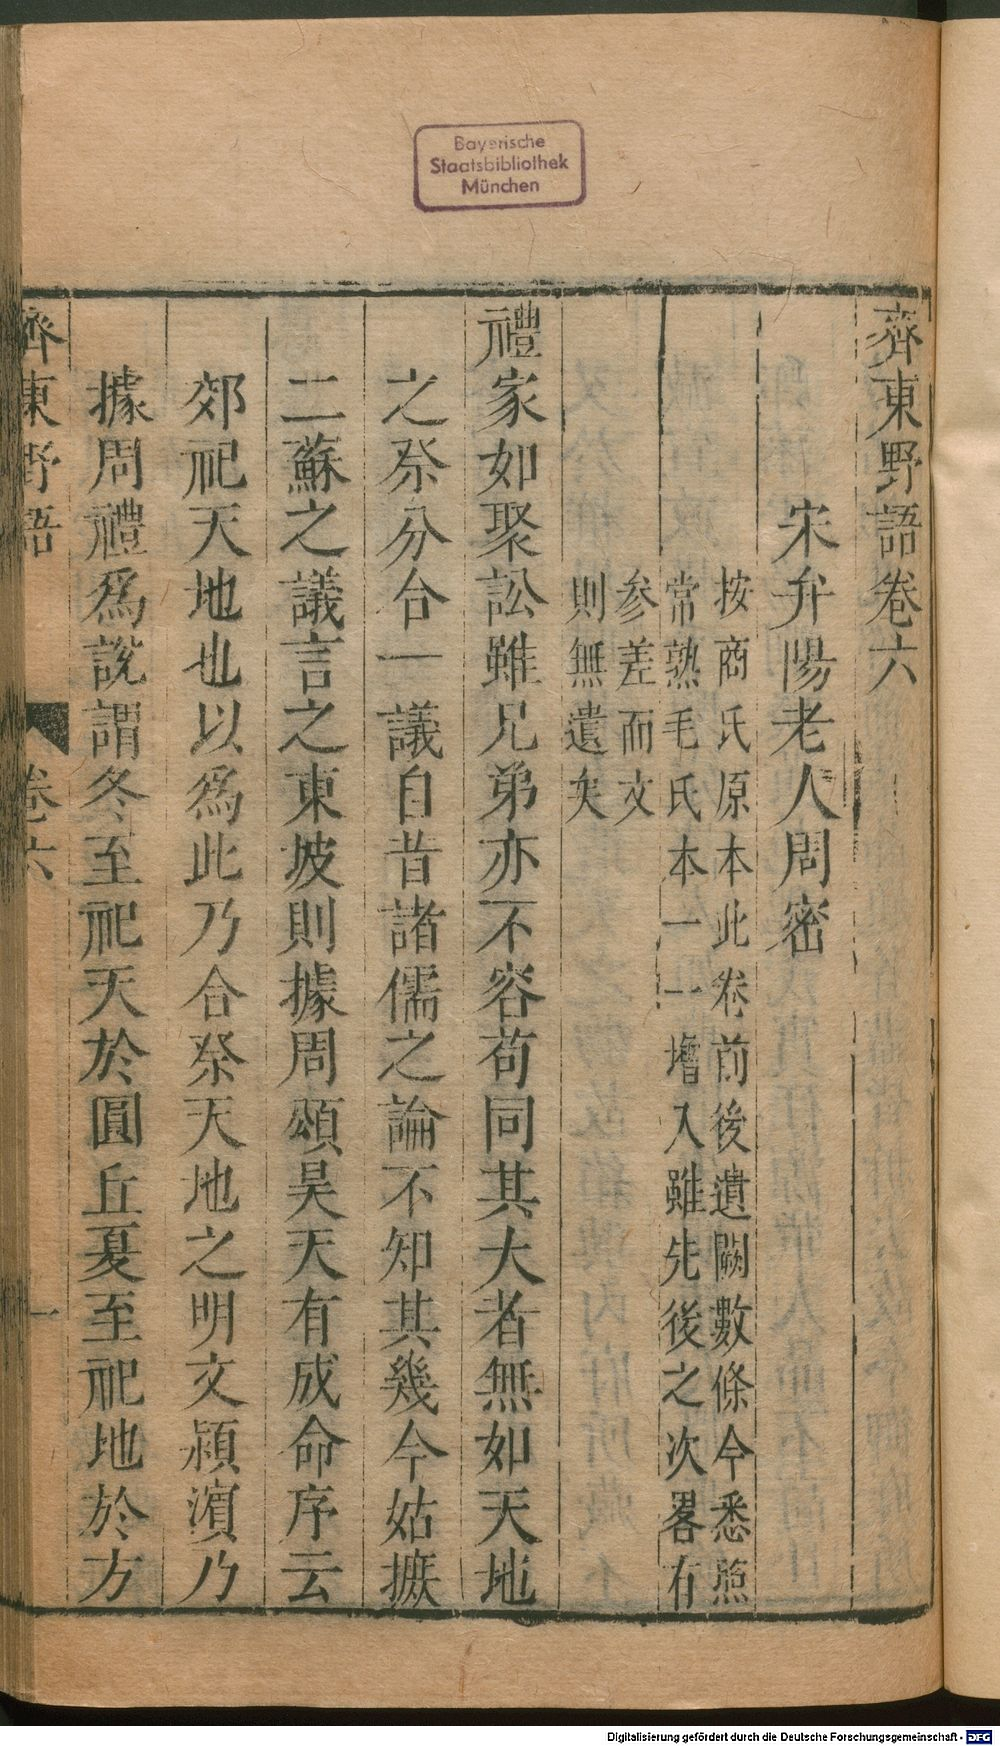 Bayerische
Staatsbibliothek
München
齊東野語卷六
宋弁陽老人周密
按商氏原本此卷前後遺闕數條今悉照
常熟毛氏本一一增入雖先後之次畧有
參差而文
則無遺矣
禮家如聚訟雖兄弟亦不容苟同其大者無如天地
之祭分合一議自昔諸儒之論不知其幾今姑摭
二蘇之議言之東坡則據周頌昊天有成命序云
郊祀天地也以為此乃合祭天地之明文潁濱乃
據周禮爲說謂冬至祀天於圓丘夏至祀地於方
齊東野語
卷六
一
Digitalisierung gefördert durch die Deutsche Forschungsgemeinschaft - DFG